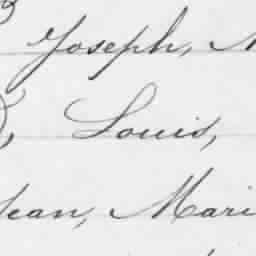 Joseph,
Louis,
Jean, Mari